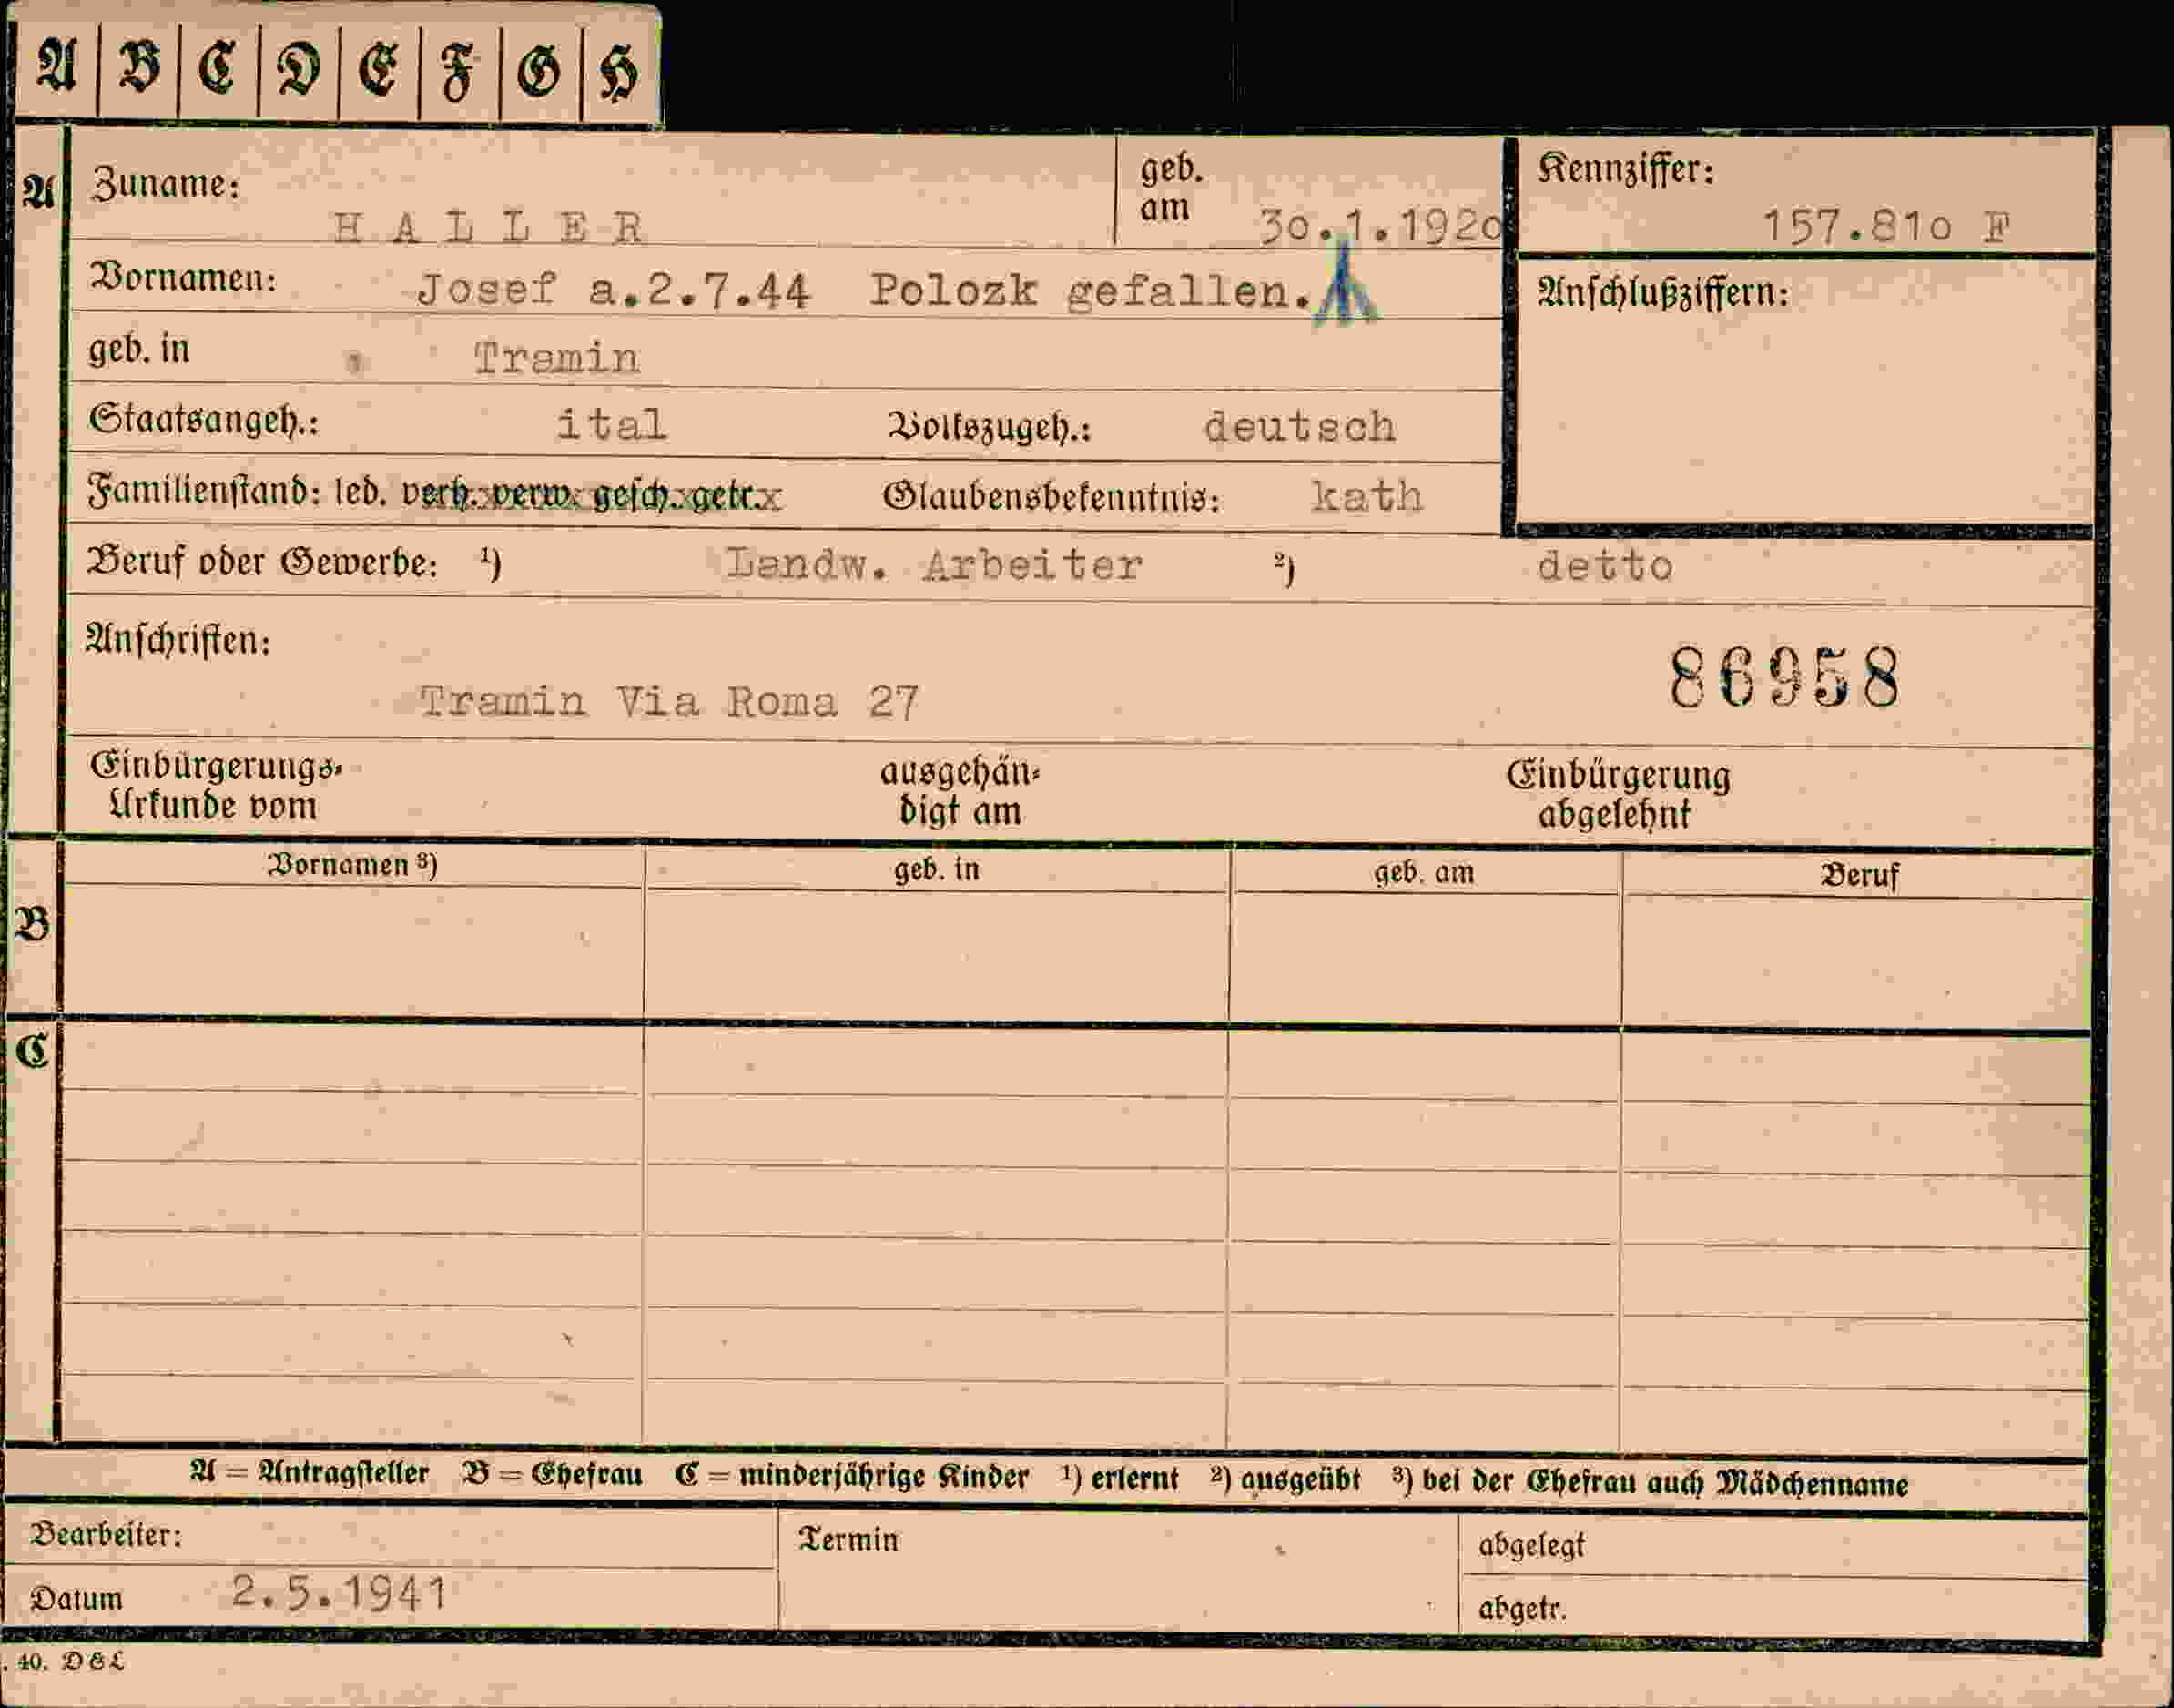 A B C D E F G H
A Zuname: HALLER geb. am 30.1.1920 Kennziffer: 157.810 F
Vornamen: Josef a.2.7.44 Polozk gefallen. Anschlußziffern:
geb. in Tramin
Staatsangeh.: ital Volkszugeh.: deutsch
Familienstand: led. verh. verw. gesch. getr. Glaubensbekenntnis: kath
Beruf oder Gewerbe: ¹) Landw. Arbeiter ²) detto
Anschriften:
86958
Tramin Via Roma 27
Einbürgerungs- ausgehän- Einbürgerung
Urkunde vom digt am abgelehnt
Vornamen ³) geb. in geb. am Beruf
B
C
A = Antragsteller B = Ehefrau C = minderjährige Kinder ¹) erlernt ²) ausgeübt ³) bei der Ehefrau auch Mädchenname
Bearbeiter: Termin abgelegt
Datum 2.5.1941 abgetr.
. 40. D&L